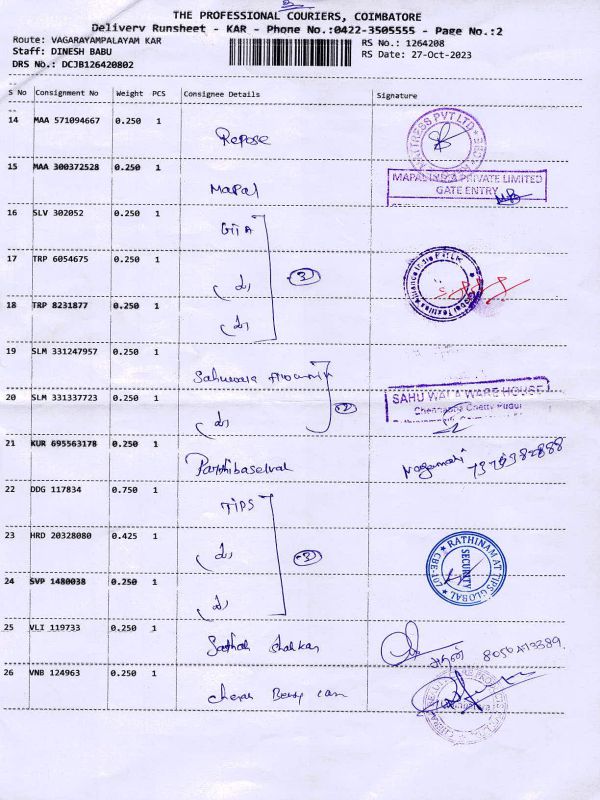 THE PROFESSIONAL COURIERS, COIMBATORE
Delivery Runsheet - KAR - Phone No.:0422-3505555 - Page No.:2
Route: VAGARAYAMPALAYAM KAR
RS No.: 1264208
Staff: DINESH BABU
RS Date: 27-Oct-2023
DRS No.: DCJB126420802
S No Consignment No Weight PCS Consignee Details Signature
14 MAA 571094667 0.250 1
Repose
MATTRESS PVT LTD
15 MAA 300372528 0.250 1
Mapal
MAPAL INDIA PRIVATE LIMITED
GATE ENTRY
16 SLV 302052 0.250 1
GTA
17 TRP 6054675 0.250 1
3
18 TRP 8231877 0.250 1
19 SLM 331247957 0.250 1
Sahuwala
20 SLM 331337723 0.250 1
2
SAHUWALA WARE HOUSE
Chennappa Chetty Pudur
21 KUR 695563178 0.250 1
Parthibaselval
Nagamani
22 DDG 117834 0.750 1
TIPS
23 HRD 20328080 0.425 1
3
RATHINAM AT TIPS GLOBAL
SECURITY
CBE-107
24 SVP 1480038 0.250 1
25 VLI 119733 0.250 1
26 VNB 124963 0.250 1